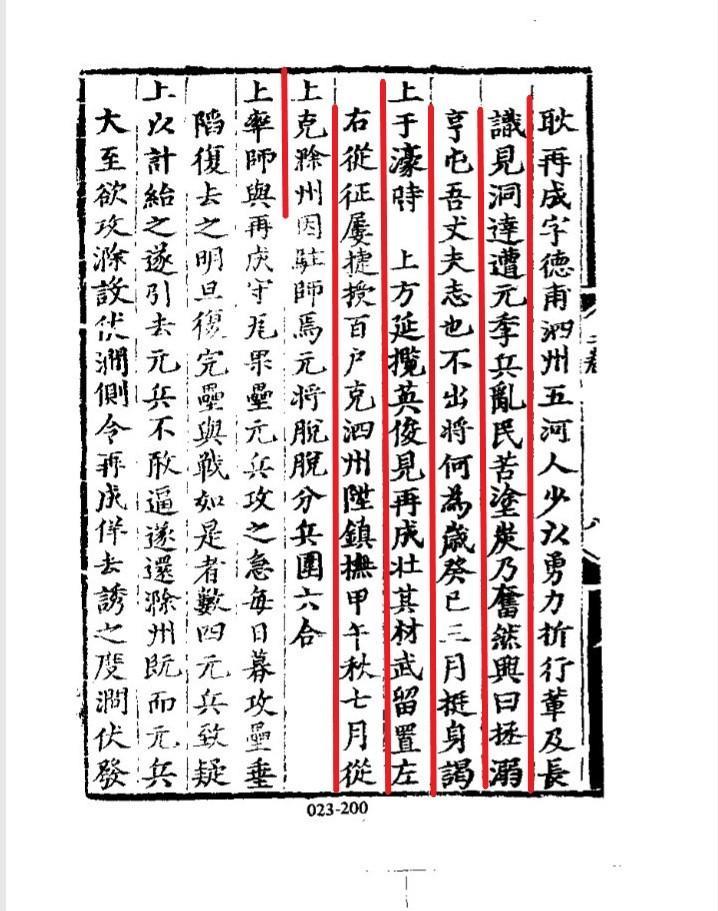 耿再成字德甫泗州五河人少以勇力折行輩及長
識見洞達遭元季兵亂民苦塗炭乃奮然興曰拯溺
亨屯吾丈夫志也不出將何為歲癸巳三月挺身謁
上于濠時　上方延攬英俊見再成壯其材武留置左
右從征屢捷授百户克泗州陞鎮撫甲午秋七月從
上克滁州因駐師焉元将脫脫分兵圍六合
上率師與再成守瓦梁壘元兵攻之急每日暮攻壘垂
陷復去之明旦復完壘與戰如是者數四元兵致疑
上以計紿之遂引去元兵不敢逼遂還滁州既而元兵
大至欲攻滁設伏澗側令再成佯去誘之度澗伏發
023-200